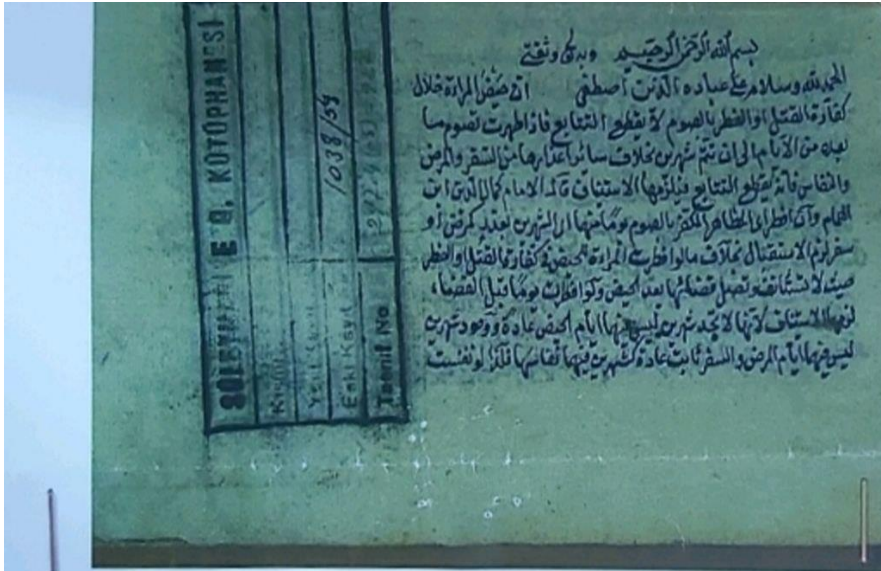 بسم الله الرحمن الرحيم وبه ثقتي
الحمد لله وسلام على عباده الذين اصطفى ان حيض المرأة خلال
كفارة القتل او الفطر بالصوم لا يقطع التتابع فاذا طهرت تصوم ما
بعده من الأيام الى ان تتم شهرين بخلاف سائر اعذارها من السفر والمرض
والنفاس فانه يقطع التتابع فيلزمها الاستئناف قاله الامام كمال الدين ابن
الهمام وان افطر المظاهر المكفر بالصوم يوما منها اي الشهرين بعذر كمرض أو
سفر لزم الاستقبال بخلاف ما لو افطرت المرأة للحيض في كفارة القتل او الفطر
حيث لا تستأنف وتصل قضائها بعد الحيض ولو افطرت يوما قبل القضاء
لزمها الاستئناف لأنها لا تجد شهرين ليس فيهما ايام الحيض عادة ووجود شهرين
ليس فيهما ايام المرض والسفر ثابت عادة كشهرين فيهما نفاسها فلذا لو نفست
SÜLEYMANİYE G. KÜTÜPHANESİ
Kısmı
Yeni Kayıt
Eski Kayıt 1038/54
Tasnif No